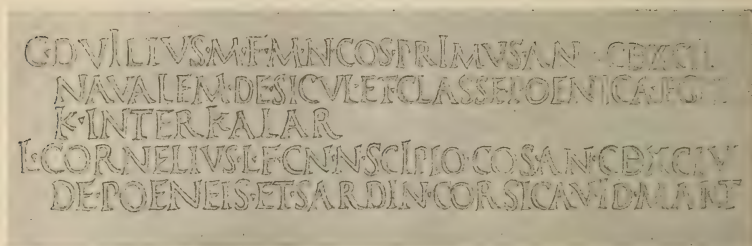 C·DVILIVS·M·F·M·N·COS·PRIMVS·AN·
NAVALEM·DE·SICVL·ET·CLASSE·POENICA·
K·INTERKALAR
L·CORNELIVS·L·F·CN·N·SCIPIO·COS·AN·CDXCIV
DE·POENEIS·ET·SARDIN·CORSICA·V·ID·MART